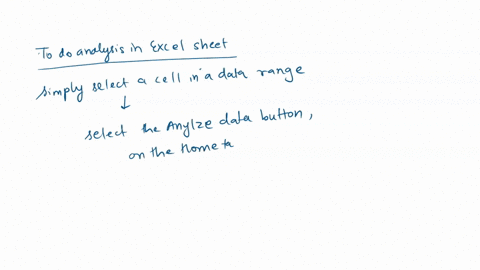 To do analysis in Excel sheet
simply select a cell in a data range
↓
select the Anylze data button,
on the Home ta